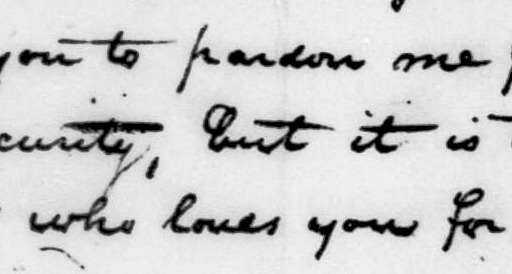 you to pardon me
curity, but it is
who loves you for